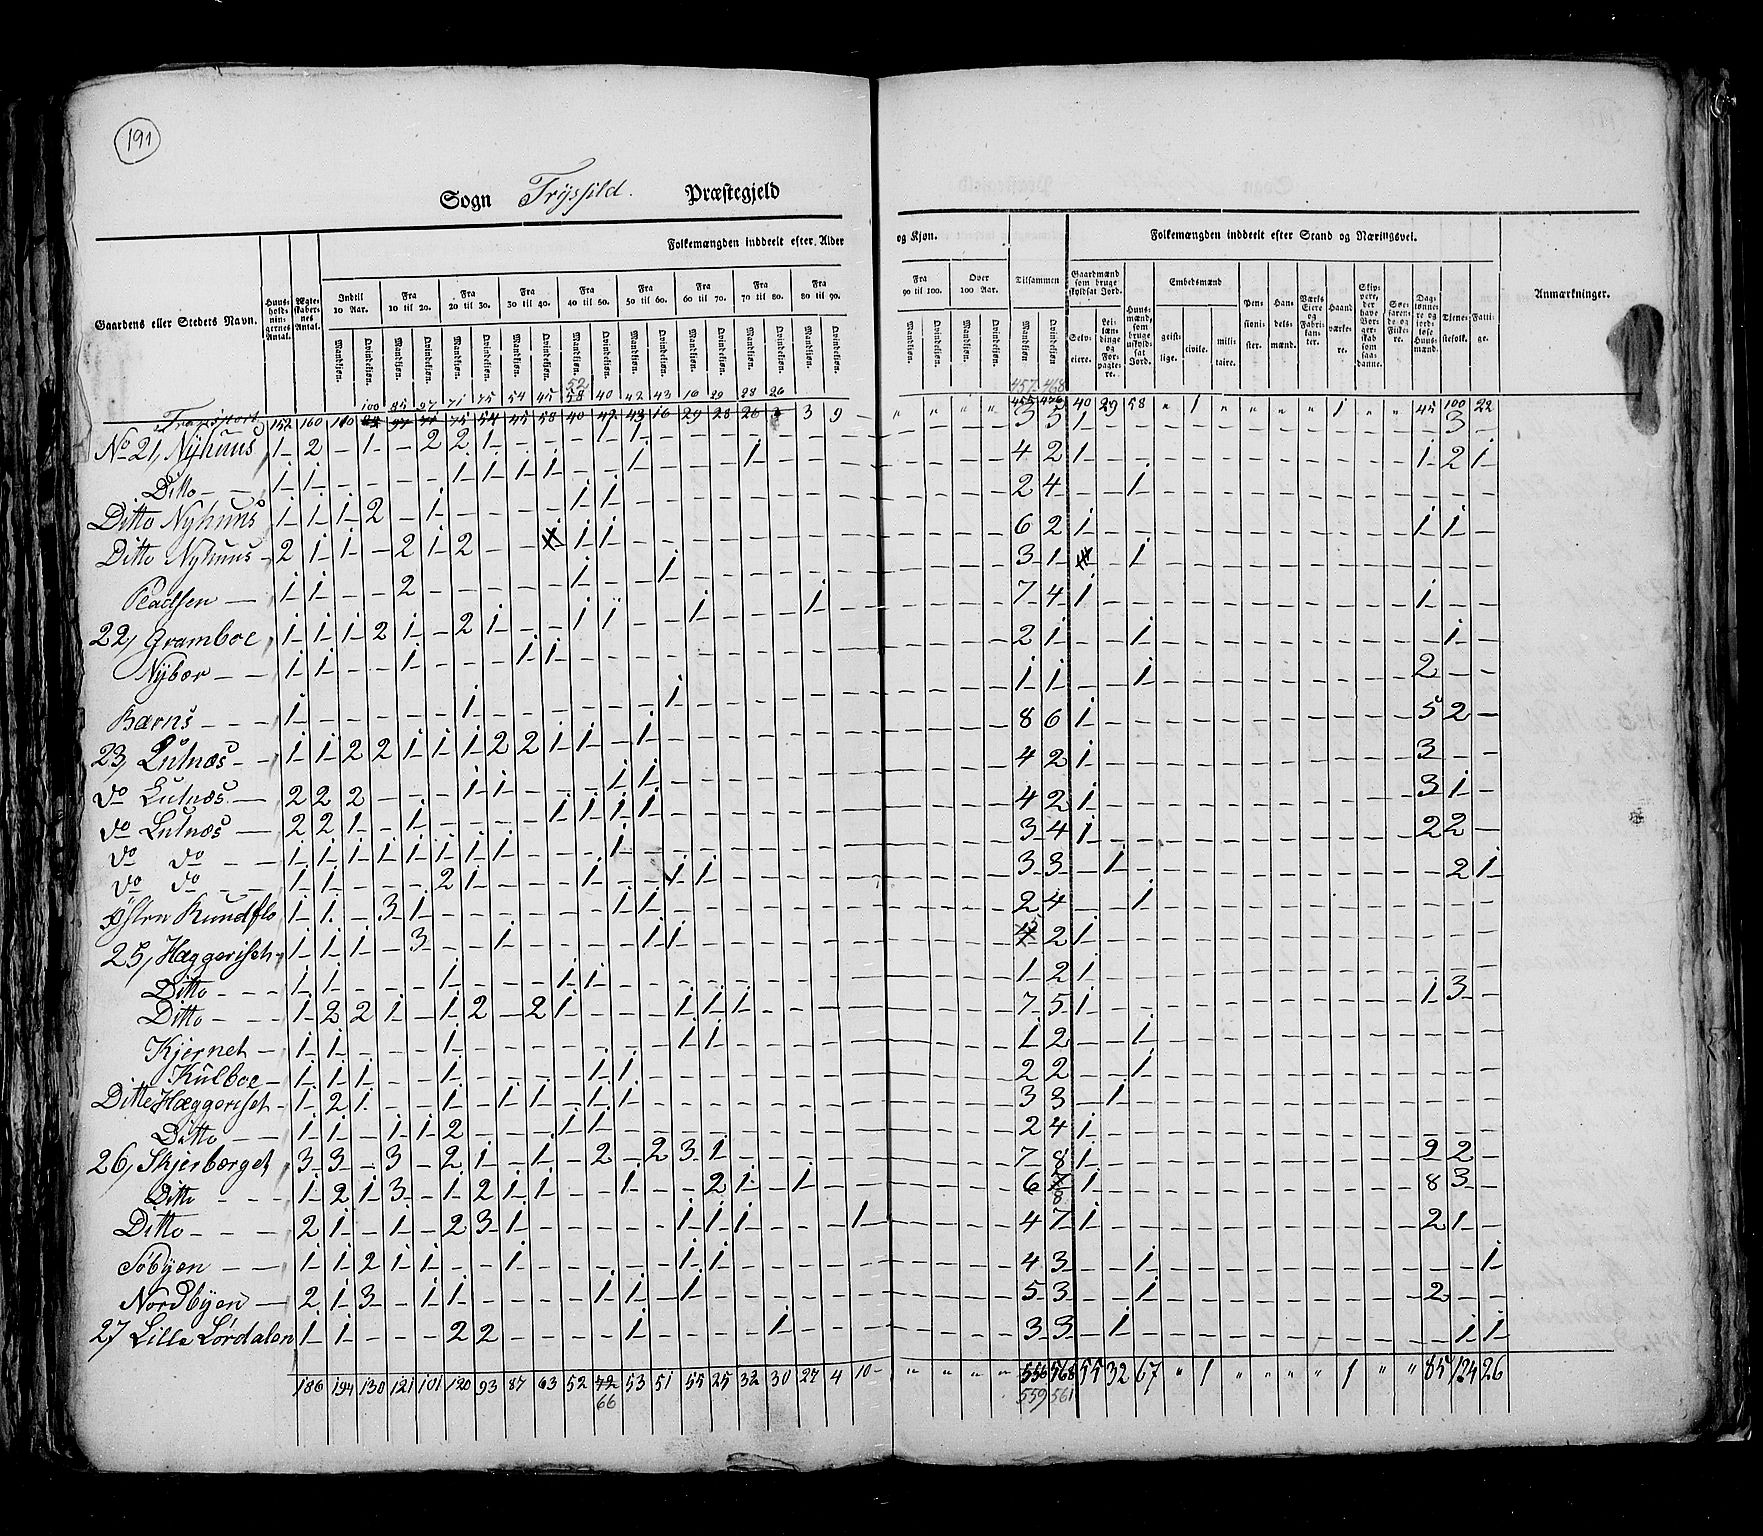 191
Sogn Trysild. Præstegjeld
Folkemængden inddeelt efter Alder og Kjøn. Folkemængden inddeelt efter Stand og Næringsvei.
Gaardens eller Stedets Navn. Huus-holdnin-gernes Antal. Ægte-skaber-nes Antal. Indtil 10 Aar. Fra 10 til 20. Fra 20 til 30. Fra 30 til 40. Fra 40 til 50. Fra 50 til 60. Fra 60 til 70. Fra 70 til 80. Fra 80 til 90. Fra 90 til 100. Over 100 Aar. Tilsammen Gaardmænd som bruge skyldsat Jord. Selv-eiere. Lei-læn-dinge og For-pagte-re. Huus-mænd, som bruge uskyld-sat Jord. Embedsmænd geist-lige. civile. mili-taire. Pen-sioni-ster. Han-dels-mænd. Værks Eiere og Fabri-kan-ter. Haand-værke-re. Skip-pere, der have Bor-ger-skab som saa-danne. Søe-farende og Fiske-re. Dag-lønne-re og jord-løse Huus-mænd. Tjene-stefolk. Fatti-ge. Anmærkninger.
Mandkjøn. Qvindekjøn. Mandkjøn. Qvindekjøn. Mandkjøn. Qvindekjøn. Mandkjøn. Qvindekjøn. Mandkjøn. Qvindekjøn. Mandkjøn. Qvindekjøn. Mandkjøn. Qvindekjøn. Mandkjøn. Qvindekjøn. Mandkjøn. Qvindekjøn. Mandkjøn. Qvindekjøn. Mandkjøn. Qvindekjøn. Mandkjøn. Qvindekjøn.
100 85 97 71 75 54 45 52 40 42 43 16 29 28 26 457 468
Transport 152 160 110 3 9 40 29 58 " 1 " " " " 1 " " 45 100 22
No 21, Nyhuus 1 2 - 1 - 2 2 1 3 5 1 3
Ditto 1 1 4 2 1 1 2 1
Ditto Nyhuus 1 1 1 2 - 1 2 4 1
Ditto Nyhuus 2 1 1 - 2 1 2 6 2 1 1 1
1 1 - - 2 3 1 1
22, Gramboe 1 1 1 2 1 - 2 1 7 4 1 1
Nÿbær 1 1 - - 1 2 1 1 1
Kærns 1 1 1 1 2
23, Lutnæs 1 1 2 2 1 1 1 2 2 1 1 - 1 8 6 1 5 2
do Lutnæs 2 2 2 4 2 1 3
do Lutnæs 2 2 1 - 1 4 2 1 3 1
do do 1 1 1 1 1 1 1 1 3 4 1 2 2
do do 1 1 - - - 2 1 3 3 1 2 1
Østen Rundflo 1 1 - 3 1 2 4 1
25, Hæggeriset 1 1 1 - 3 - - 1 2 1
Ditto 1 1 - - - 1 1 2 1
Ditto 1 2 2 1 - 1 2 - 2 1 7 5 1 1 3
Kjernet 1 1 - - - 1 1 2 1
Kulboe 1 1 1 - - 1 2 2 1
Ditto Hæggeriset 1 2 1 - - 1 - 1 1 - 1 1 3 3 1
Ditto 1 1 - 1 1 2 - - - 1 1 2 4 1
26, Skjerbærget 3 3 - 3 - 2 1 - 1 - 2 - 2 3 1 7 8 1 9 2
Ditto 1 2 1 3 - 1 2 1 1 - - 1 - - 2 1 - 1 6 8 1 8 3
Ditto 2 1 - 1 - 2 3 1 - - - - - 1 1 1 - - - 1 4 7 1 2 1
Søbyen 1 1 2 1 1 - - 1 - - - - - 1 1 4 3 1 1
Nordbyen 2 1 3 - 1 1 - - - - 1 1 - 1 5 3 1 2
27 Lille Lørdalen 1 1 - - - 2 2 - - - - 1 - - - - 1 3 3 1 1 1
186 194 130 121 101 120 93 87 63 52 72 53 51 55 25 32 30 27 4 10 " " " " 556 568 55 32 67 " 1 " " " " 1 " " 85 124 26
66 559 561